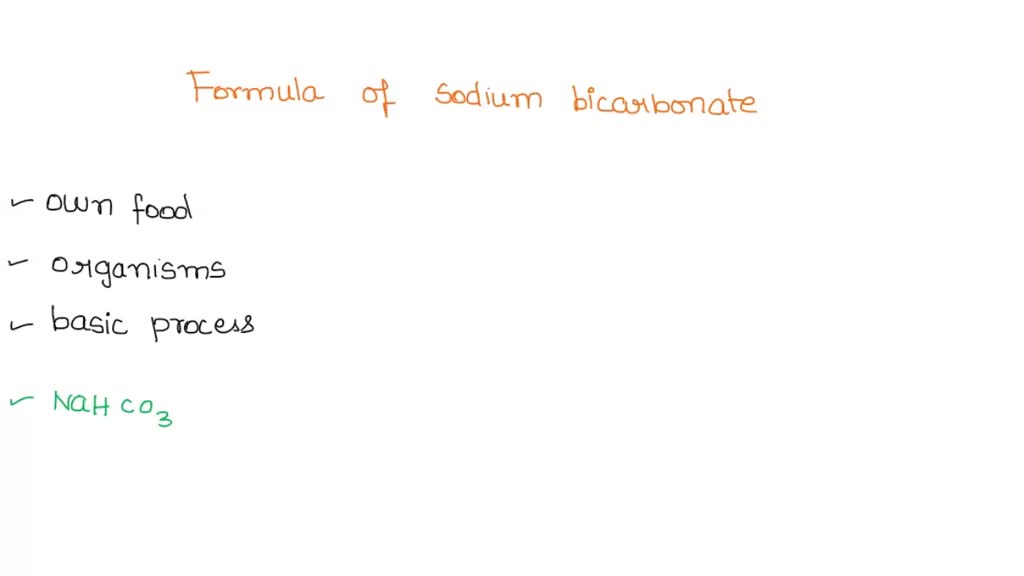 Formula of sodium bicarbonate
✓ own food
✓ organisms
✓ basic process
✓ NaHCO₃